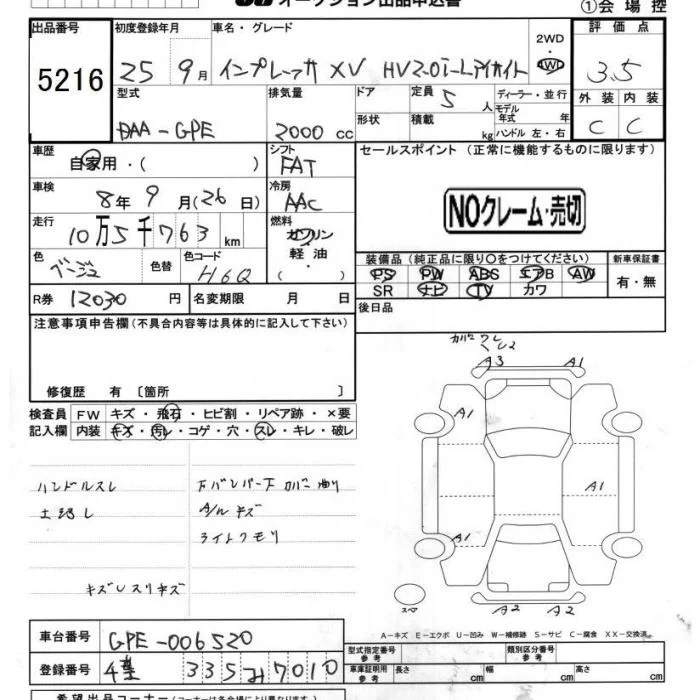 オークション出品申込書 ①会場控
出品番号 5216
初度登録年月 25 9月
車名・グレード インプレッサ XV HV2.0i-Lアイサイト
2WD・4WD
評価点 3.5
外装 C 内装 C
型式 DAA-GPE
排気量 2000 cc
ドア 形状
定員 5 人
積載 kg
ディーラー・並行
モデル年式 年
ハンドル 左・右
車歴 自家用・( )
シフト FAT
車検 8年 9月(26日)
冷房 AAC
走行 10万5千763 km
燃料 ガソリン 軽油 ・( )
色 ベージュ 色替
色コード H6Q
R券 12030 円
名変期限 月 日
セールスポイント (正常に機能するものに限ります)
NOクレーム・売切
装備品(純正品に限り○をつけてください)
PS PW ABS エアB AW
SR ナビ TV カワ
新車保証書 有・無
後日品
注意事項申告欄(不具合内容等は具体的に記入して下さい)
修復歴 有 〔箇所 〕
検査員記入欄
FW キズ・飛石・ヒビ割・リペア跡・×要
内装 キズ・汚レ・コゲ・穴・スレ・キレ・破レ
ハンドルスレ
下バンパー下 カバー曲り
A/W キズ
ライトクモリ
キズUスリキズ
A3 A1
A1
A1 A1
A2 A2
スペ
A-キズ E-エクボ U-凹み W-補修跡 S-サビ C-腐食 XX-交換済
車台番号 GPE-006520
登録番号 335 み 7010
型式指定番号 参考
類別区分番号 参考
車庫証明用 参考 長さ cm 幅 cm 高さ cm
希望出品コーナー